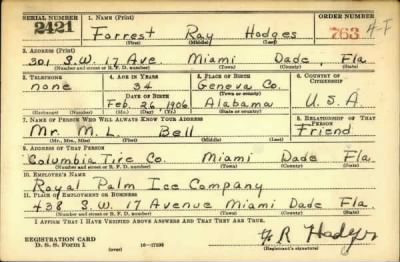 SERIAL NUMBER 1. NAME (Print) ORDER NUMBER
2421 Forrest Ray Hodges 763 4-F
(First) (Middle) (Last)
2. ADDRESS (Print)
301 S.W. 17 Ave. Miami Dade, Fla.
(Number and street or R. F. D. number) (Town) (County) (State)
3. TELEPHONE 4. AGE IN YEARS 5. PLACE OF BIRTH 6. COUNTRY OF CITIZENSHIP
none 34 Geneva Co.
DATE OF BIRTH (Town or county)
Feb. 26, 1906 Alabama U.S.A.
(Mo.) (Day) (Yr.) (State or country)
7. NAME OF PERSON WHO WILL ALWAYS KNOW YOUR ADDRESS 8. RELATIONSHIP OF THAT PERSON
Mr. M. L. Bell Friend
(Mr., Mrs., Miss) (First) (Middle) (Last)
9. ADDRESS OF THAT PERSON
Columbia Tire Co. Miami Dade Fla.
(Number and street or R. F. D. number) (Town) (County) (State)
10. EMPLOYER'S NAME
Royal Palm Ice Company
11. PLACE OF EMPLOYMENT OR BUSINESS
438 S.W. 17 Avenue Miami Dade Fla.
(Number and street or R. F. D. number) (Town) (County) (State)
I AFFIRM THAT I HAVE VERIFIED ABOVE ANSWERS AND THAT THEY ARE TRUE.
REGISTRATION CARD
D. S. S. Form 1 (over) 16—17105 R Hodges
(Registrant's signature)